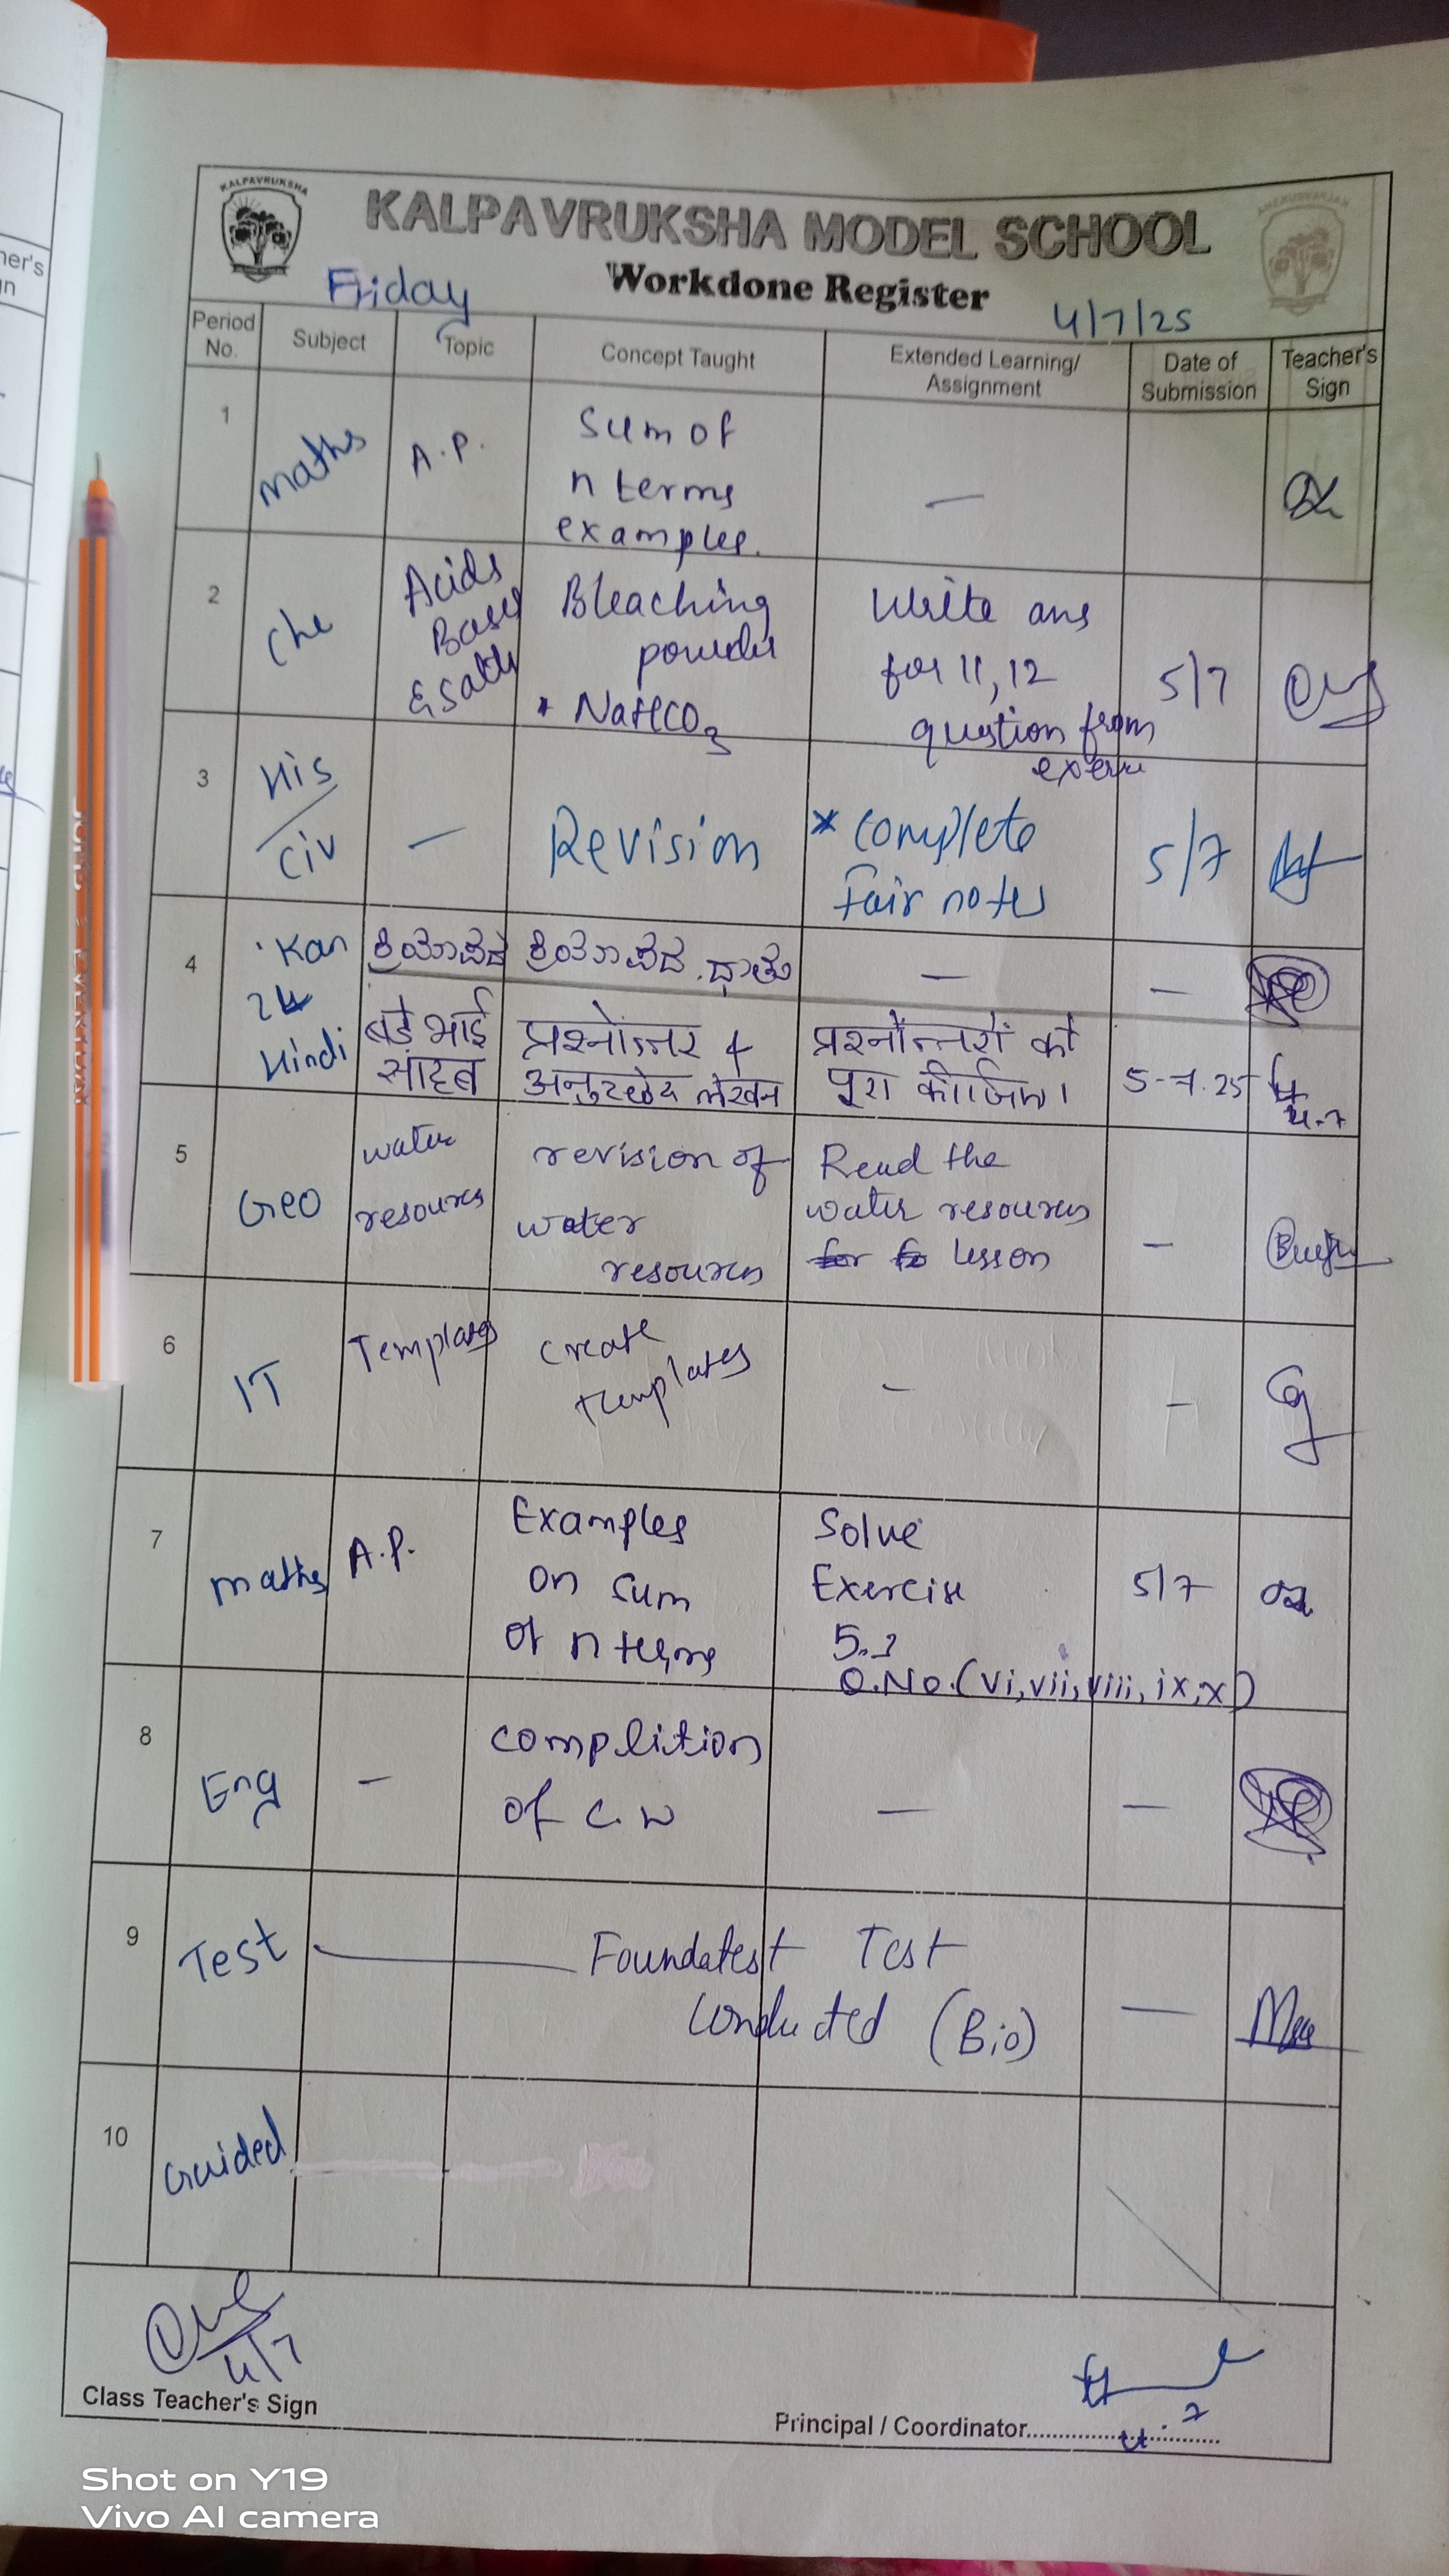 KALPAVRUKSHA
KALPAVRUKSHA MODEL SCHOOL
Workdone Register
Friday
4/7/25
Period No.
Subject
Topic
Concept Taught
Extended Learning/
Assignment
Date of
Submission
Teacher's
Sign
1
maths
A.P.
Sum of
n terms
examples.
—
2
Che
Acids
Bases
& salts
Bleaching
powder
* NaHCO3
Write ans
for 11, 12
question from
5/7
3
His
Civ
—
Revision
* Complete
Fair notes
5/7
4
Kan
2L
Hindi
ಕ್ರಿಯಾಪದ
ಕ್ರಿಯಾಪದ. ಧಾತು
—
—
बडे भाई
साहब
प्रश्नोत्तर &
अनुच्छेद लेखन
प्रश्नोत्तरों को
पूरा कीजिए।
5-7.25
4.7
5
Geo
water
resources
revision of
water
resources
Read the
water resources
lesson
—
6
IT
Templates
Create
templates
—
—
7
maths
A.P.
Examples
on sum
of n terms
Solve
Exercise
Q.No.(vi, vii, viii, ix, x)
5/7
8
Eng
—
complition
of C.W
—
—
9
Test
Foundatest Test
Conducted (Bio)
—
10
Guided
4/7
Class Teacher's Sign
4.7
Principal / Coordinator
Shot on Y19
Vivo AI camera